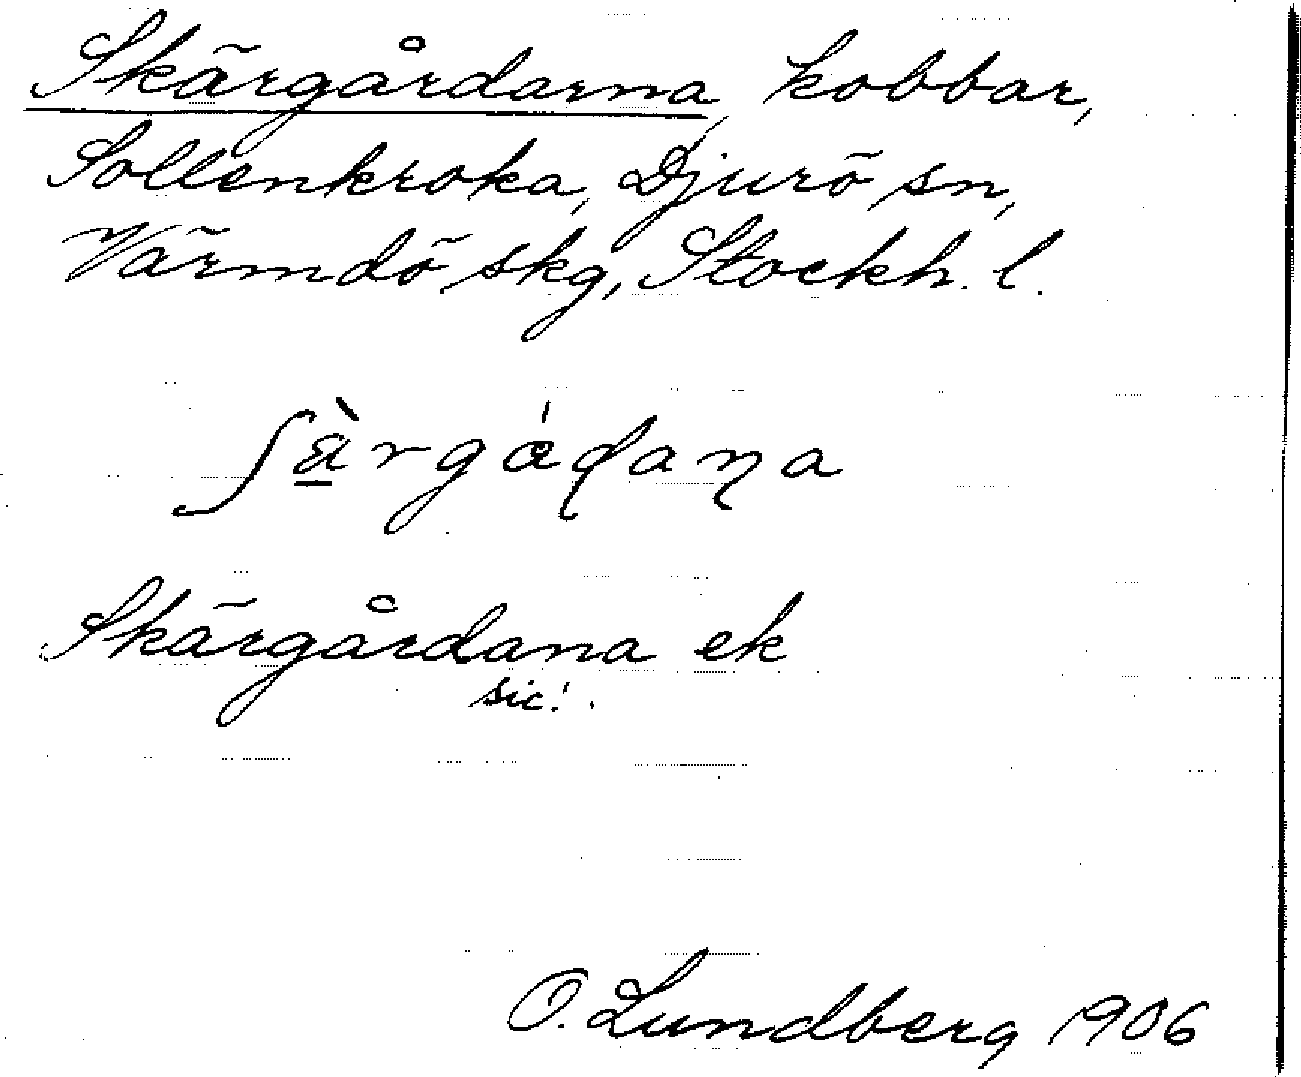 Skärgårdarna kobbar,
Sollenkroka, Djurö sn,
Värmdö skg, Stockh. l.
Skärgårdana ek
sic!
O. Lundberg 1906